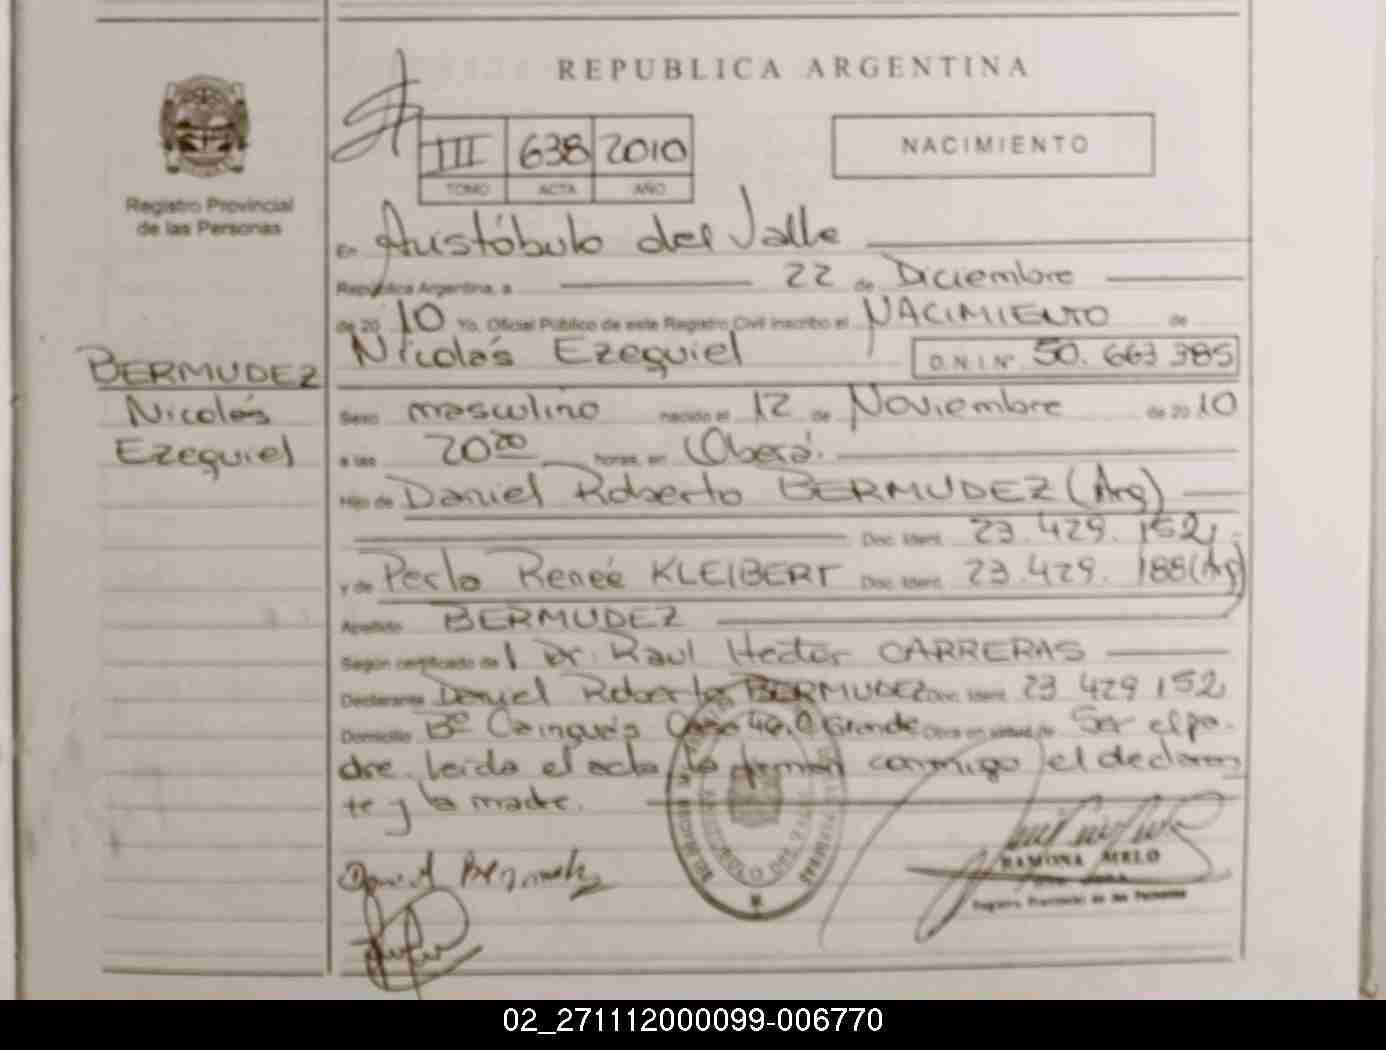 REPUBLICA ARGENTINA
III 638 2010
TOMO ACTA AÑO
NACIMIENTO
Registro Provincial
de las Personas
En Aristóbulo del Valle
República Argentina, a 22 de Diciembre
de 20 10 Yo, Oficial Público de este Registro Civil inscribo el NACIMIENTO de
Nicolás Ezequiel D.N.I. Nº 50.663 385
BERMUDEZ
Nicolás
Ezequiel
Sexo masculino nacido el 12 de Noviembre de 20 10
a las 20 20 horas, en Oberá.
Hijo de Daniel Roberto BERMUDEZ (Arg)
Doc. Ident. 23.429.152,
y de Perla Reneé KLEIBERT Doc. Ident. 23.429.188 (Arg)
Apellido BERMUDEZ
Según certificado de l Dr. Raul Hector CARRERAS
Declarante Daniel Roberto BERMUDEZ Doc. Ident. 23 429 152
Domicilio Bº Cainguás Casa 46. A Grande Obra en virtud de Ser el pa-
dre. Leída el acta la firman conmigo el declaran
te y la madre.
Daniel Bermudez
RAMONA MELO
Registro Provincial de las Personas
02_271112000099-006770